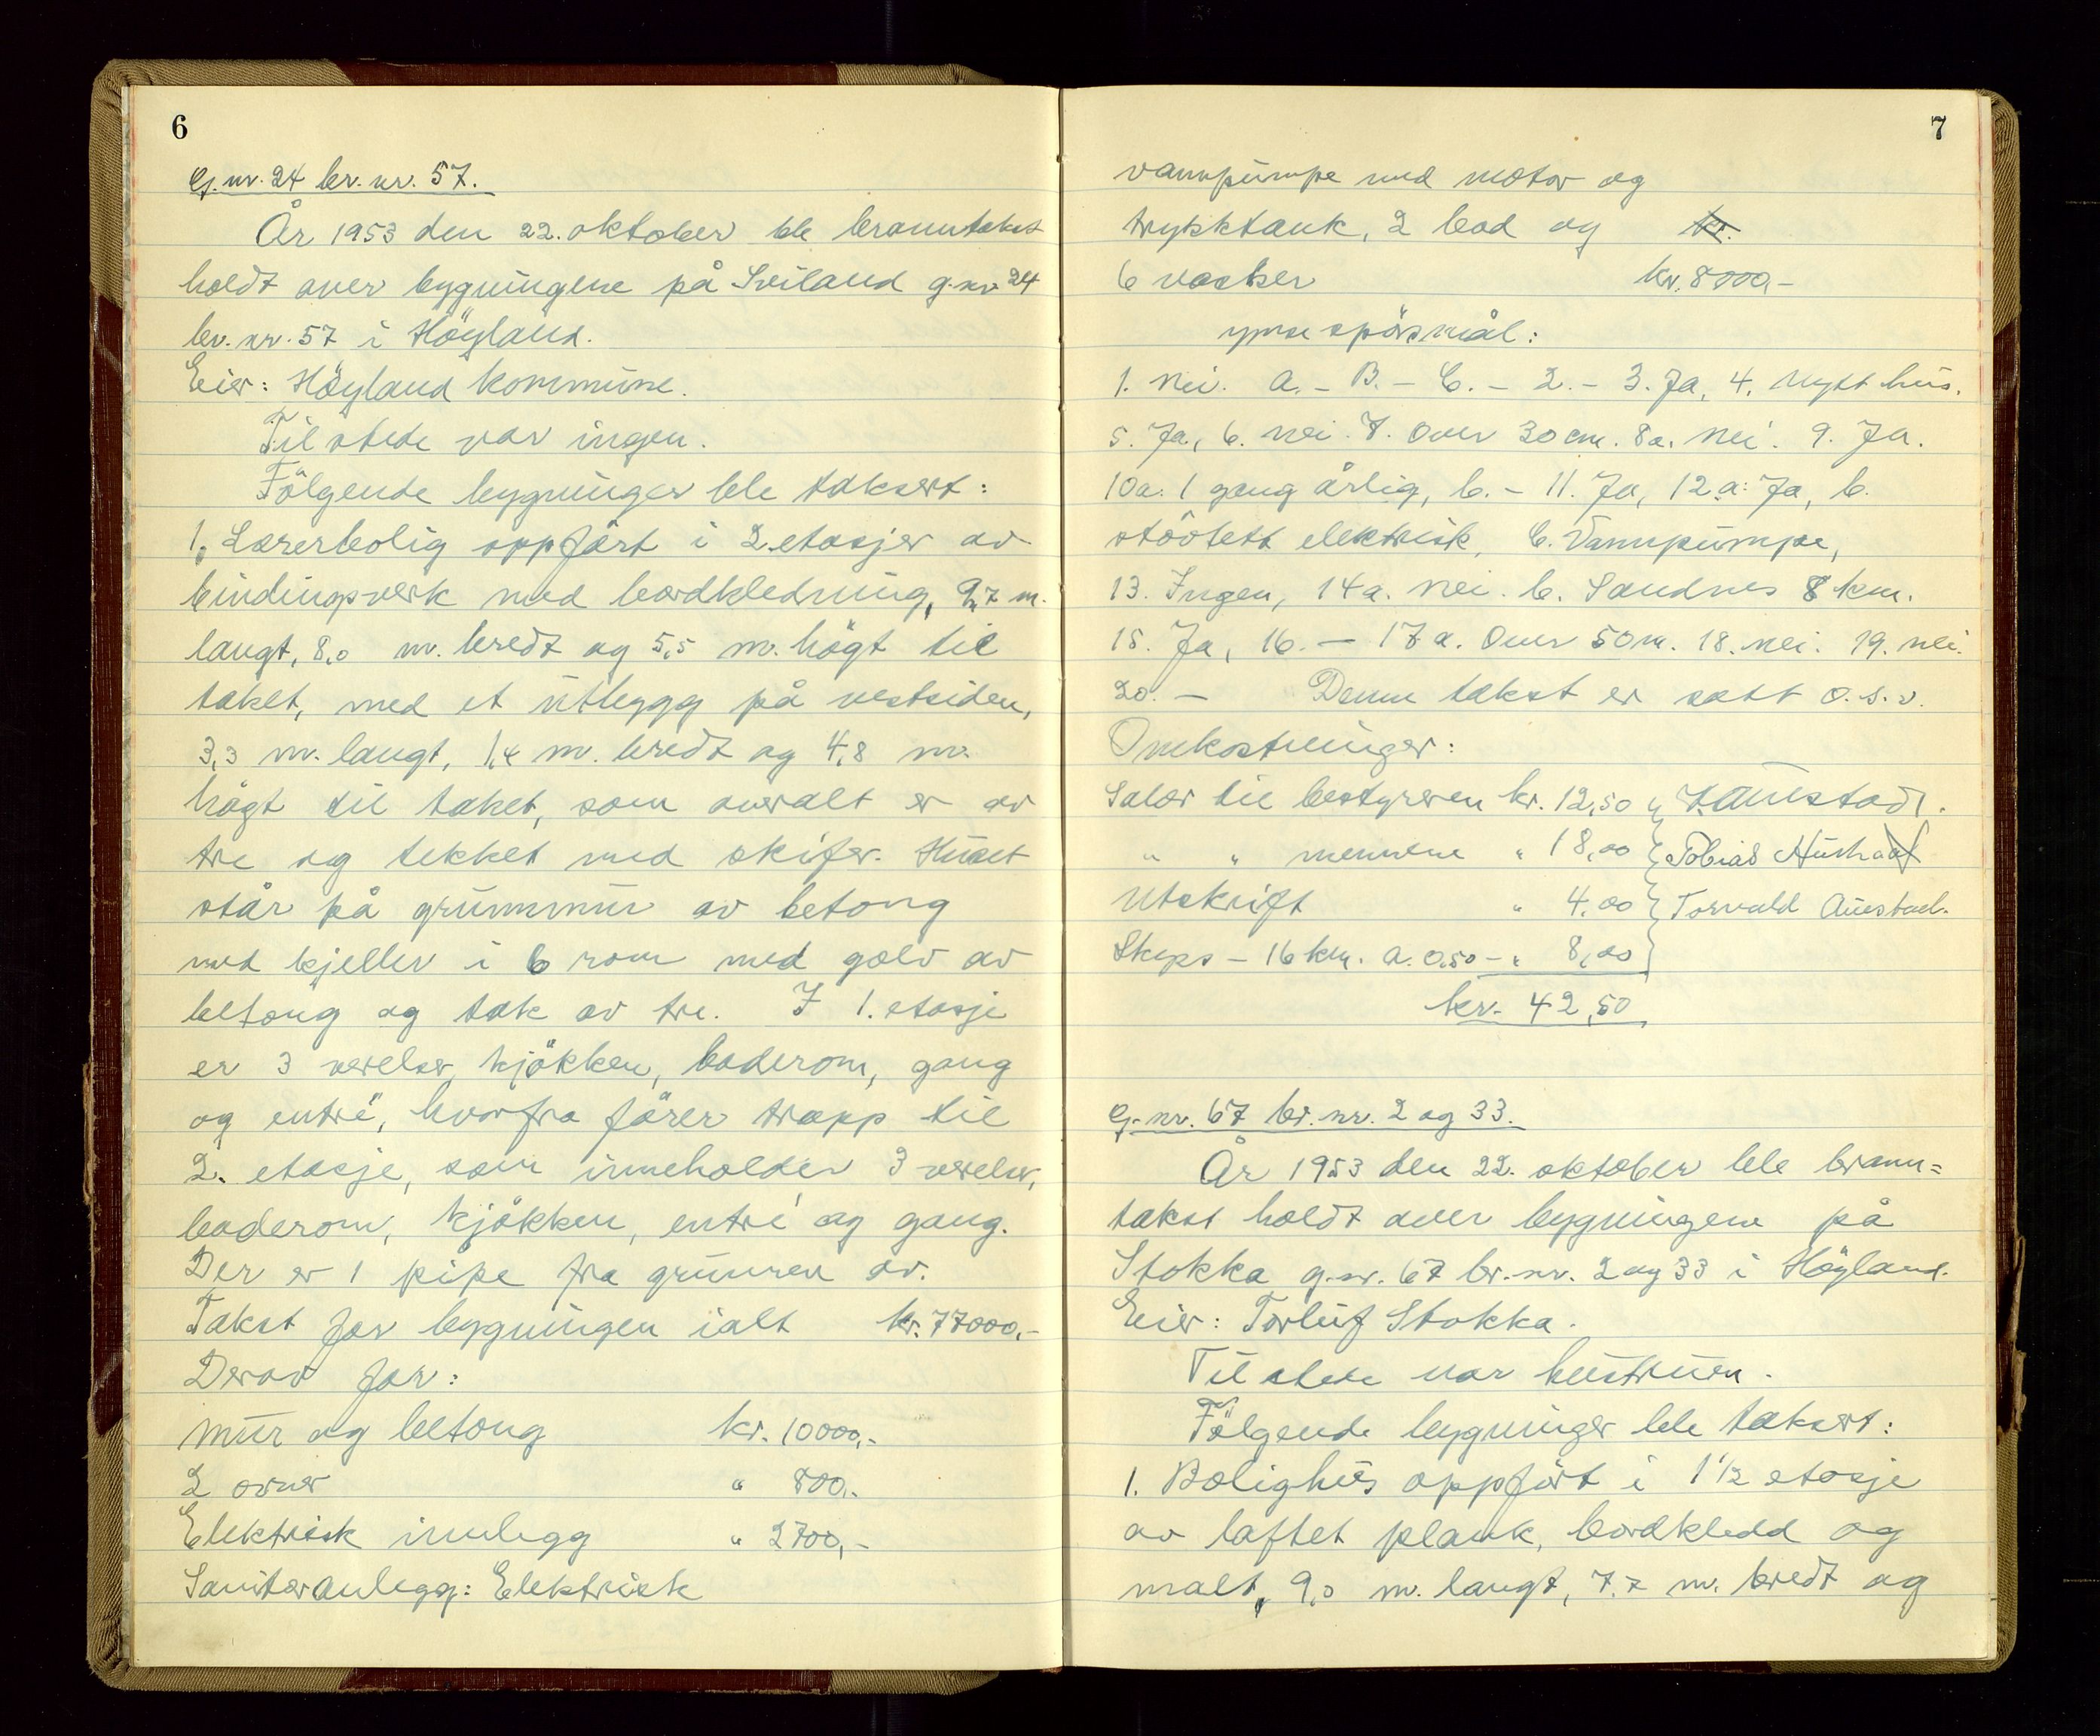 6
G.nr. 24 br. nr. 57.
År 1953 den 22. oktober ble branntakst
holdt over bygningene på Sviland g.nr 24
br. nr. 57 i Höyland.
Eier: Höyland kommune.
Til stede var ingen.
Fölgende bygninger ble taksert:
1. Lærerbolig oppfört i 2.etasjer av
bindingsverk med bordkledning, 9,7 m.
langt, 8,0 m. bredt og 5,5 m. högt til
taket, med et utbygg på vestsiden,
3,3 m. langt, 1,4 m. bredt og 4,8 m.
högt til taket, som overalt er av
tre og tekket med skifer. Huset
står på grunnmur av betong
med kjeller i 6 rom med golv av
betong og tak av tre. I 1. etasje
er 3 værelser, kjökken, baderom, gang
og entré, hvorfra förer trapp til
2. etasje, som inneholder 3 værelser,
baderom, kjökken, entré og gang.
Der er 1 pipe fra grunnen av.
Takst for bygningen ialt kr. 77000,-
Derav for:
mur og betong kr. 10000,-
2 ovner " 800,-
Elektrisk innlegg " 2700,-
Sanitæranlegg: Elektrisk
7
vannpumpe med motor og
trykktank, 2 bad og kr.
6 vasker kr. 8000,-
ymse spörsmål:
1. Nei. A. - B. - C. - 2. - 3. Ja, 4. Nytt hus.
5. Ja, 6. nei. 7. Over 30 cm. 8a. Nei. 9. Ja.
10a. 1 gang årlig, b. - 11. Ja, 12.a: Ja, b.
stövtett elektrisk, C. Vannpumpe,
13. Ingen, 14a. Nei. b. Sandnes 8 km.
15. Ja, 16. - 17a. Over 50 m. 18. nei. 19. nei.
20. - Denne takst er satt o.s.v.
Omkostninger:
Salær til bestyreren kr. 12,50 Austad.
" " mennene " 18,00 Tobias
Utskrift " 4,00 Torvald Austad.
Skyss - 16 km. a. 0,50 - " 8,00
kr. 42,50
G.nr. 67 br. nr. 2 og 33.
År 1953 den 22. oktober ble brann=
takst holdt over bygningene på
Stokka g.nr. 67 br.nr. 2 og 33 i Höyland.
Eier: Torleif Stokka.
Til stede var hustruen.
Fölgende bygninger ble taksert:
1. Bolighus oppfört i 1 1/2 etasje
av laftet plank, bordkledd og
malt, 9,0 m. langt, 7,7 m. bredt og